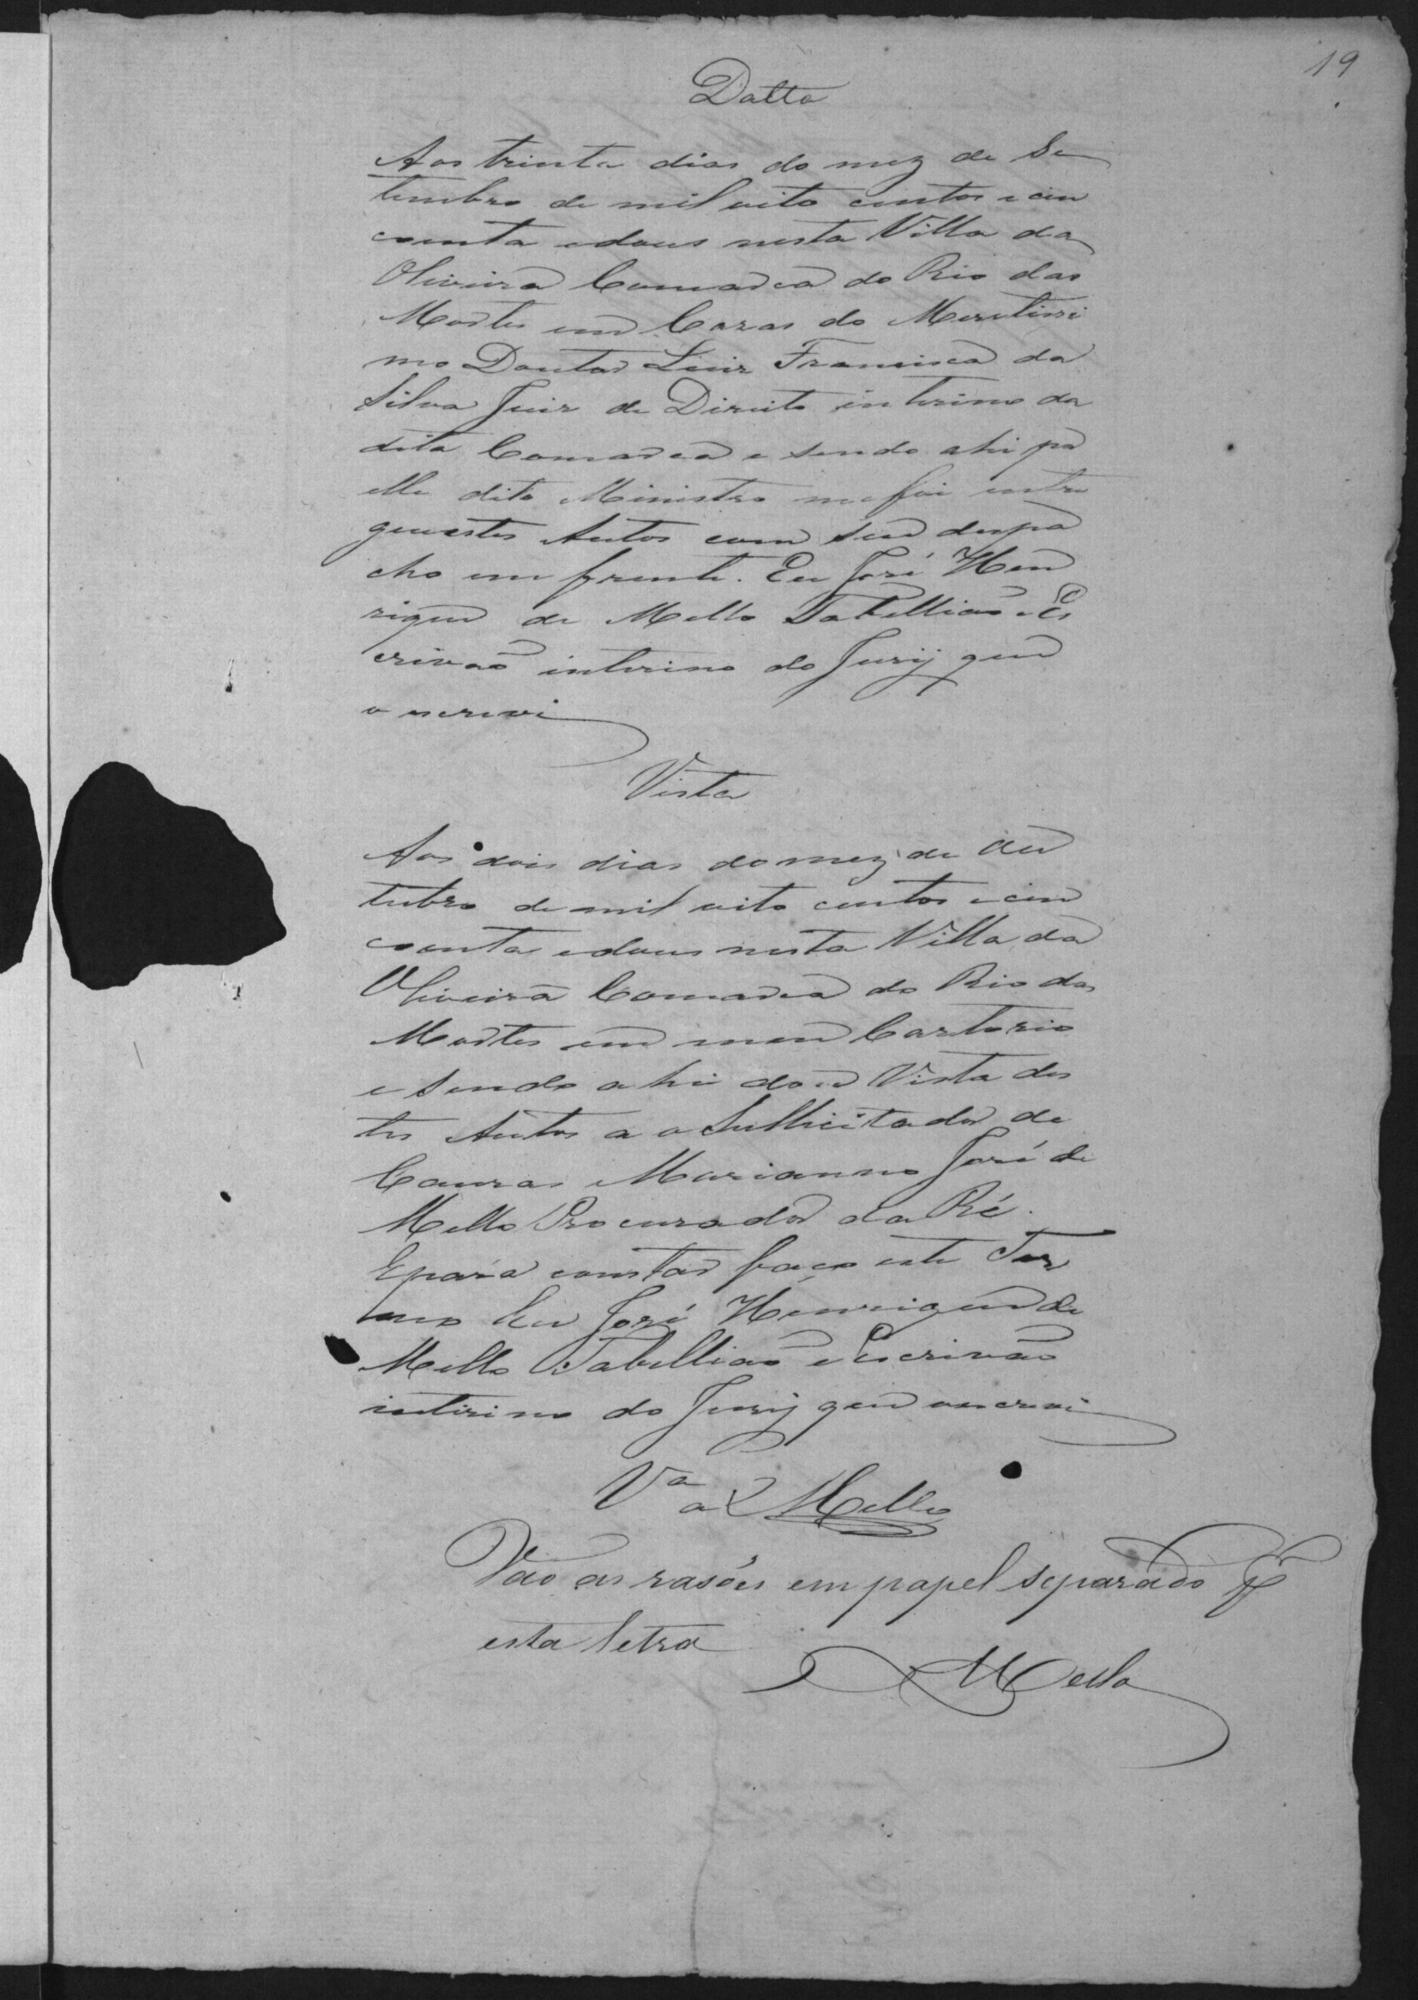 19
Datta
Aos trinta dias do mez de Se
tembro de mil oito centos e cin
coenta edous nesta Villa da
Oliveira Comarca do Rio das
Mortes em Cazas do Meretissi
mo Doutor Luiz Francisco da
Silva Juiz de Direito interino da
dita Comarca e sendo ahi por
elle dito Ministro me foi entre
gue estes Autos com seu despa
cho em frente. Eu José Hen
rique de Mello Tabellião e Es
crivão interino do Jury que
o escrevi
Vista
Aos dois dias do mez de Ou
tubro de mil oito centos e cin
coenta edous nesta Villa da
Oliveira Comarca do Rio das
Mortes em meu Cartorio
e sendo ahi dou Vista des
tes Autos a o Sullicitador de
Causas Marianno José de
Mello Procurador da Ré.
Epara constar faço este Ter
mo Eu José Henrique de
Mello Tabellião e Escrivão
interino do Jury que oescrevi
Vª a Mello
Vão as rasões em papel separado
esta letra
Mello